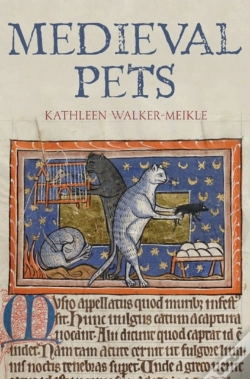 MEDIEVAL
PETS
KATHLEEN WALKER-MEIKLE
Musio appellatus quod muribus infest
sit. Hunc vulgus catum a captura
vocant. Alii dicunt quod captat id e
videt. Nam tam acute cernit ut fulgore lumi
nis noctis tenebras superet. Unde a greco